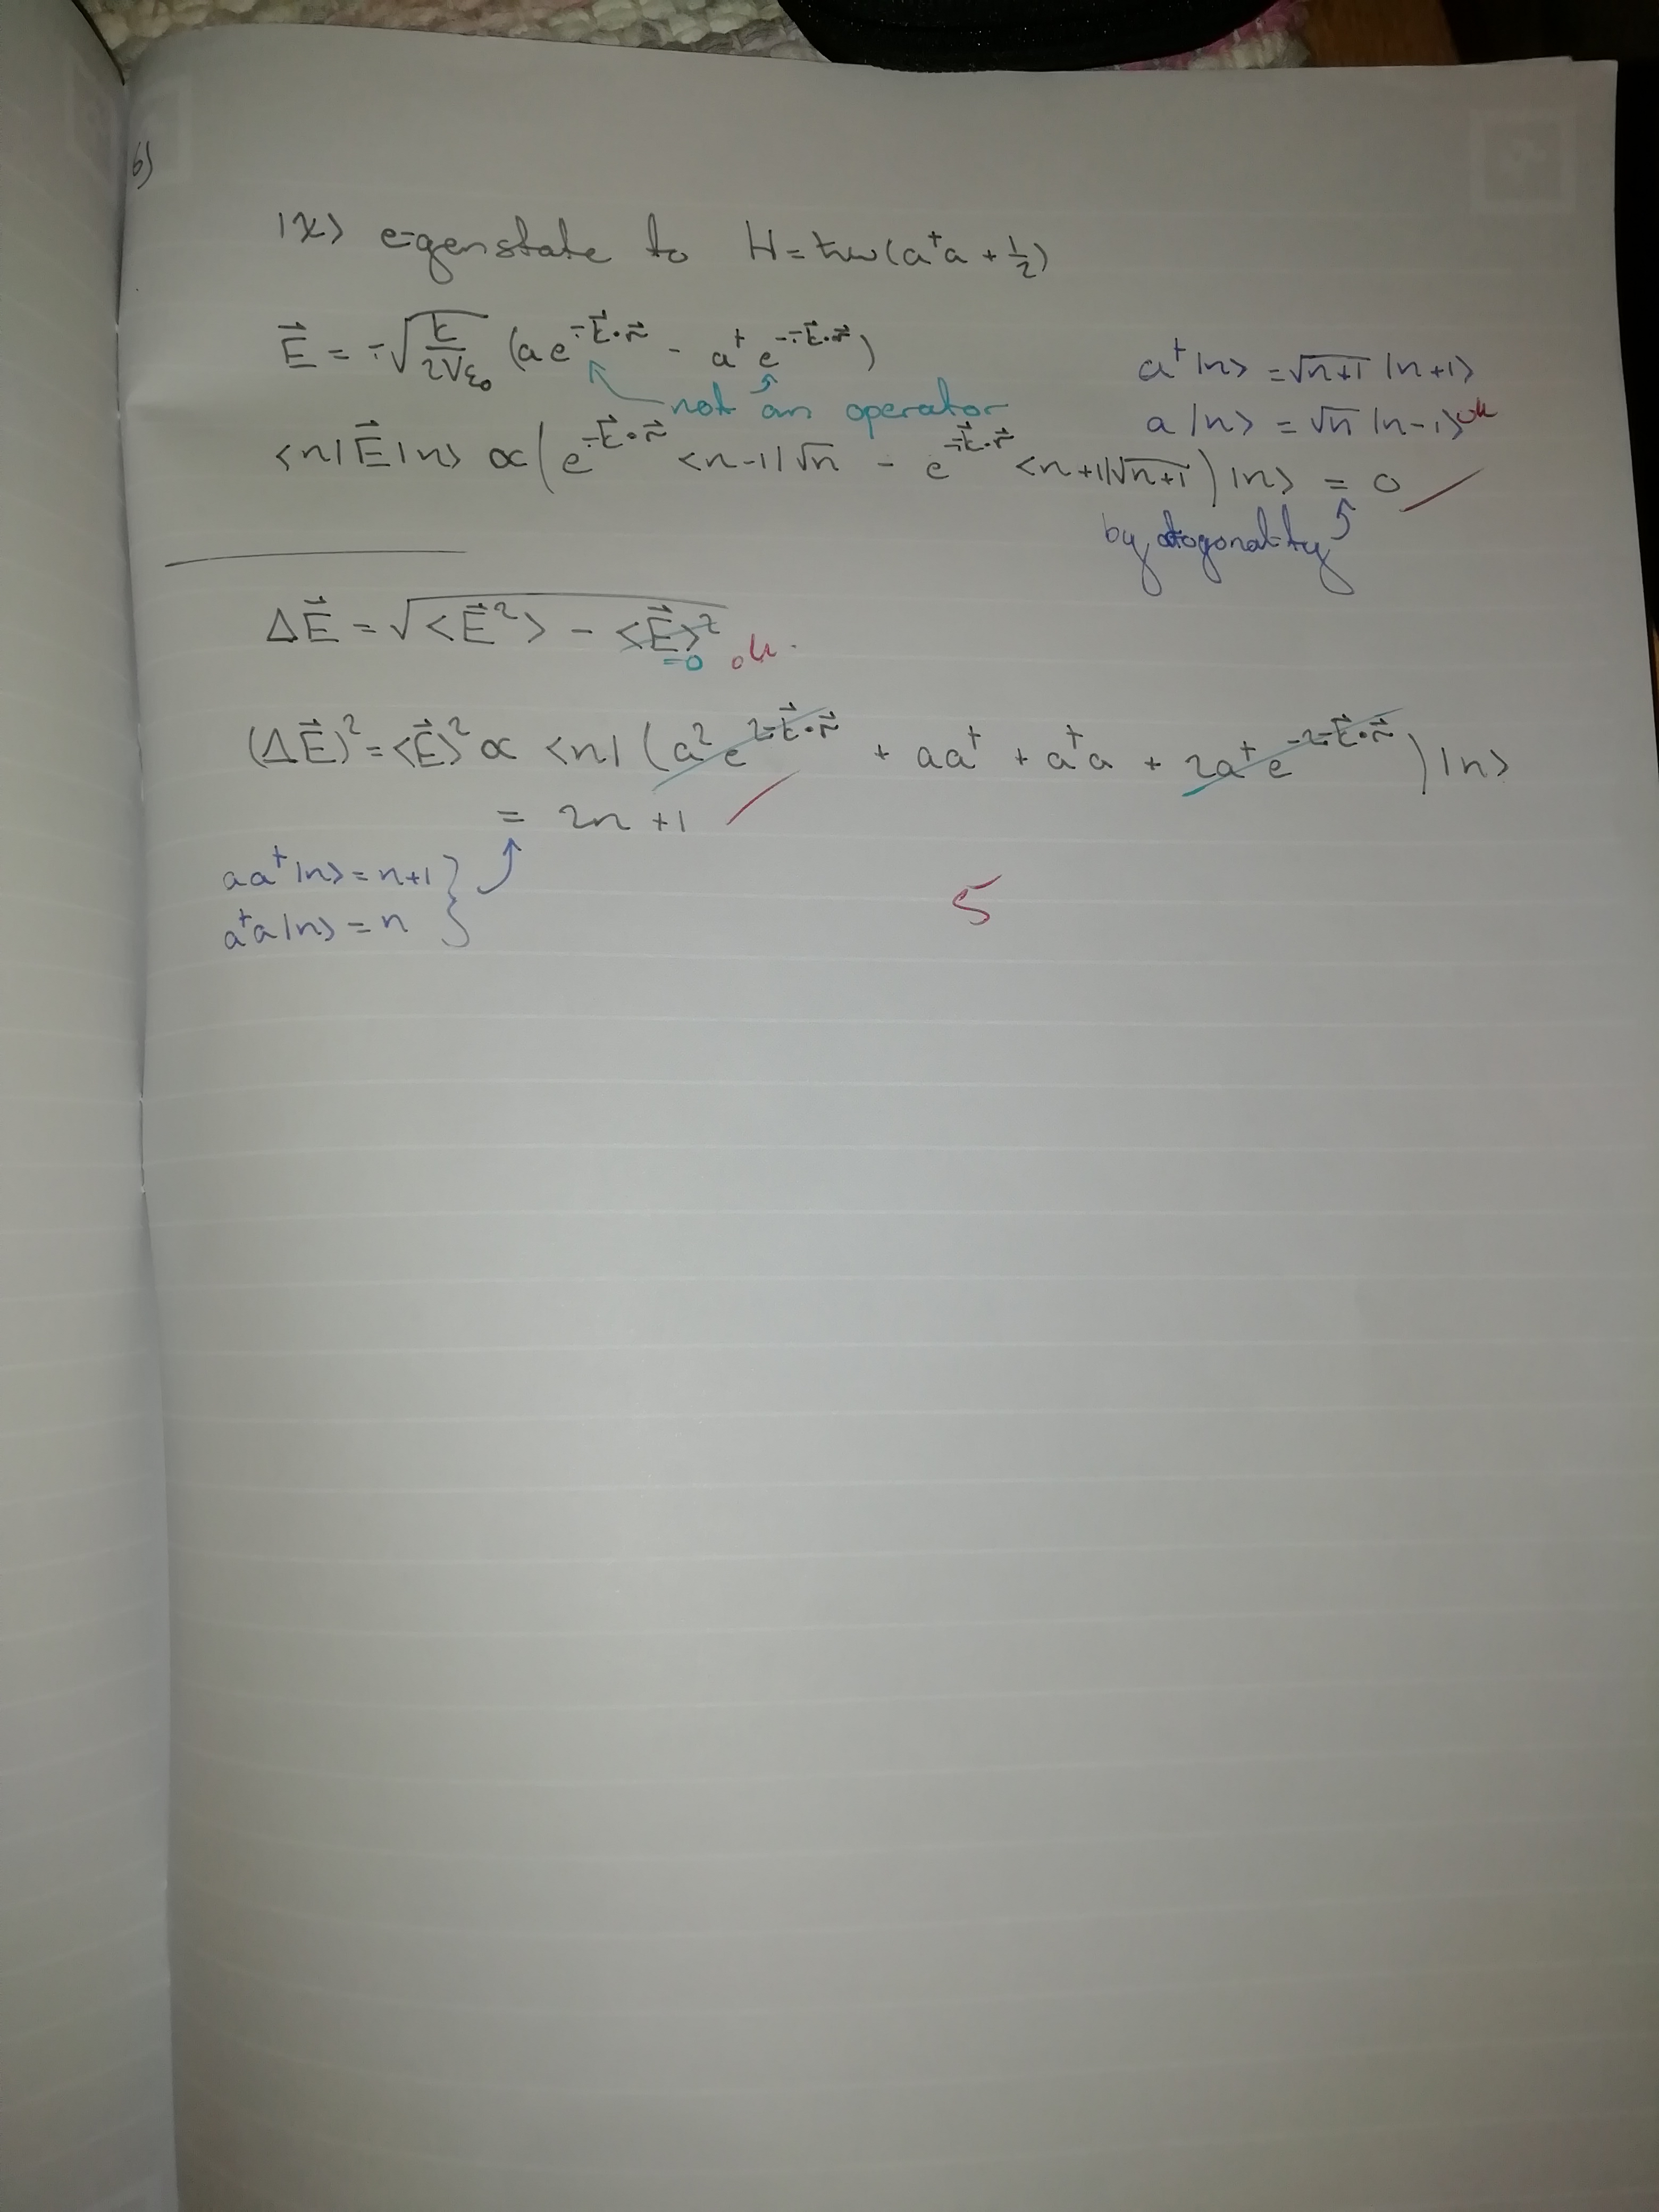 b)
|χ> eigenstate to H = ħω(a†a + 1/2)
E⃗ = i√(ħ/2Vε₀) (a e^{ik⃗·r⃗} - a† e^{-ik⃗·r⃗})
not an operator
a†|n> = √n+1 |n+1>
a|n> = √n |n-1> ok
<n|E⃗|n> ∝ (e^{ik⃗·r⃗} <n-1|√n - e^{ik⃗·r⃗} <n+1|√n+1) |n> = 0
by otogonality
ΔE⃗ = √(<E⃗²> - <E⃗>²)
=0 ok.
(ΔE⃗)² = <E⃗>² ∝ <n| (a² e^{2ik⃗·r⃗} + aa† + a†a + 2a† e^{-2ik⃗·r⃗}) |n>
= 2n + 1
aa†|n> = n+1
a†a|n> = n
5